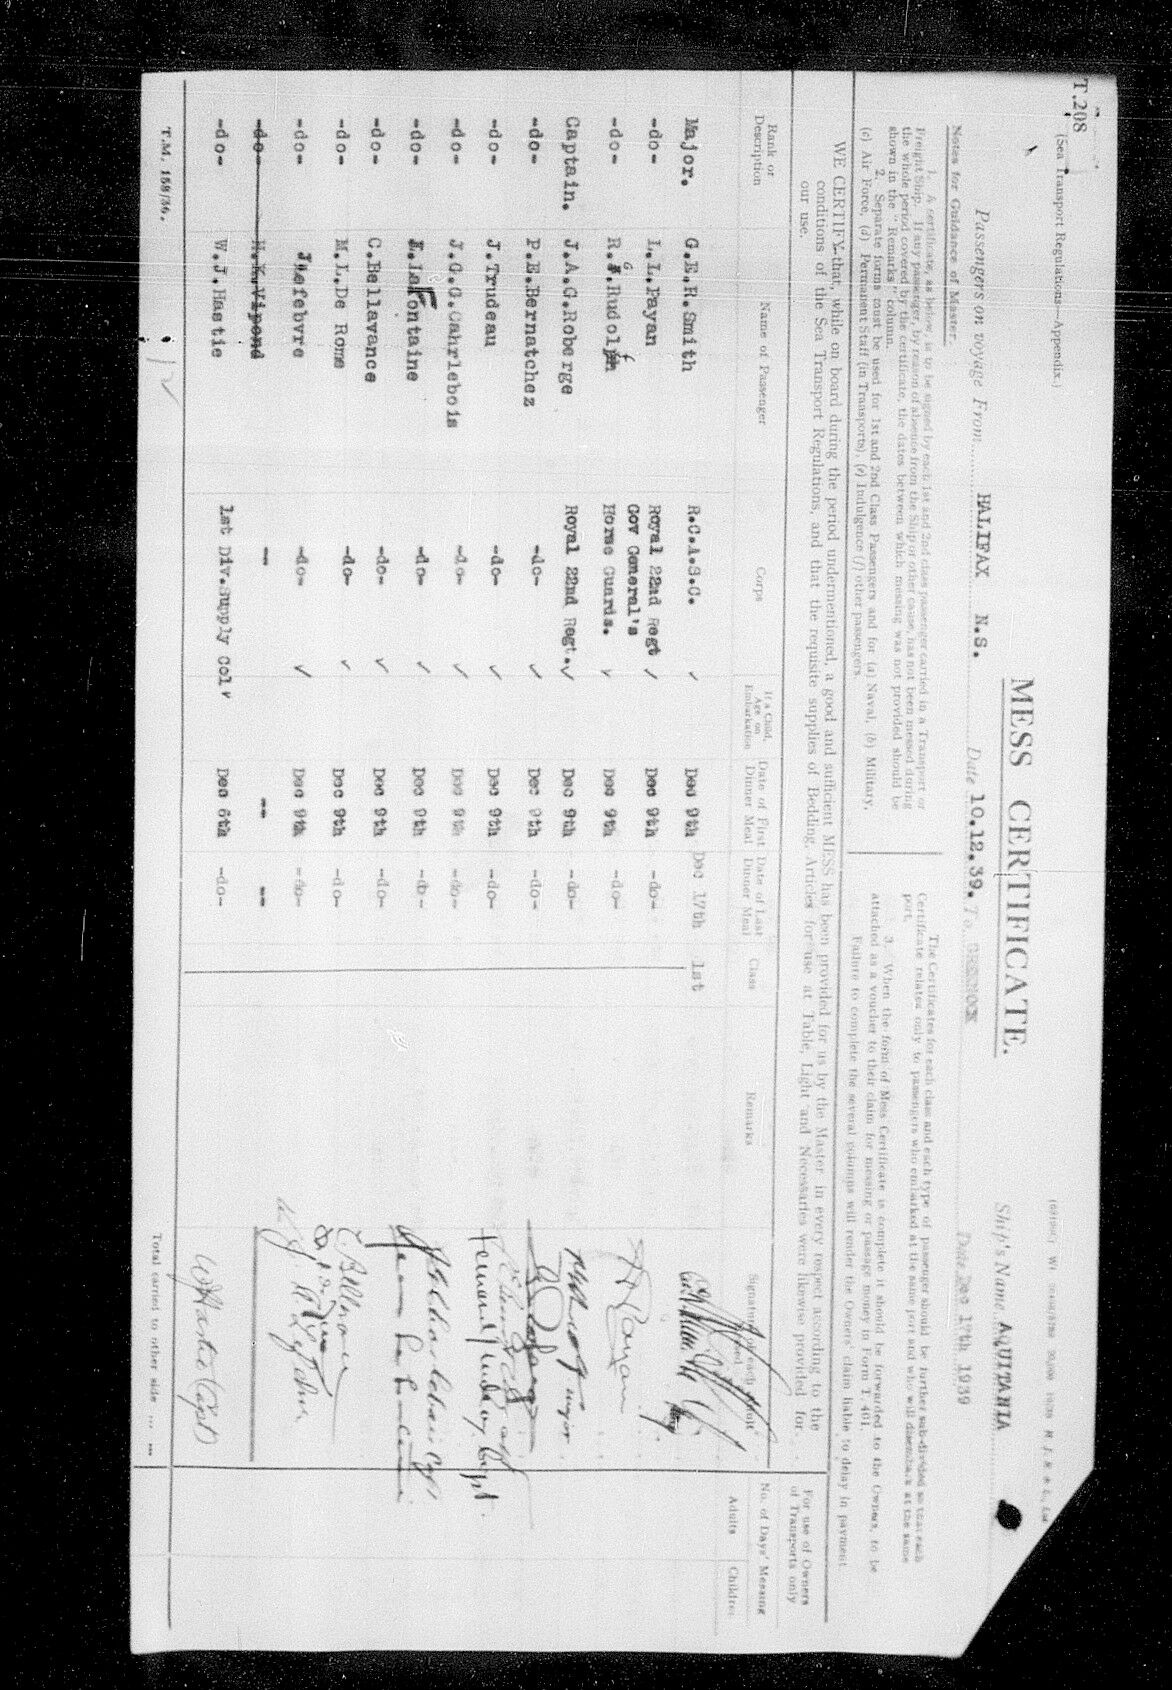 T.208
(Sea Transport Regulations—Appendix.)
MESS CERTIFICATE.
Ship's Name AQUITANIA
Passengers on voyage From HALIFAX N.S. Date 10.12.39. To GREENOCK Date Dec 17th 1939
Notes for Guidance of Master.
1. A certificate, as below, is to be signed by each 1st and 2nd class passenger carried in a Transport or
Freight Ship. If any passenger, by reason of absence from the Ship or other cause, has not been messed during
the whole period covered by the certificate, the dates between which messing was not provided should be
shown in the "Remarks" column.
2. Separate forms must be used for 1st and 2nd Class Passengers and for (a) Naval, (b) Military,
(c) Air Force, (d) Permanent Staff (in Transports), (e) Indulgence (f) other passengers.
The Certificates for each class and each type of passenger should be further sub-divided so that each
Certificate relates only to passengers who embarked at the same port and who will disembark at the same
port.
3. When the form of Mess Certificate is complete it should be forwarded to the Owners, to be
attached as a voucher to their claim for messing or passage money in Form T. 401.
Failure to complete the several columns will render the Owners' claim liable to delay in payment
WE CERTIFY that, while on board during the period undermentioned, a good and sufficient MESS has been provided for us by the Master in every respect according to the
conditions of the Sea Transport Regulations, and that the requisite supplies of Bedding, Articles for use at Table, Light and Necessaries were likewise provided for
our use.
For use of Owners
of Transports only
Rank or Description Name of Passenger Corps If a Child, Age on Embarkation Date of First Dinner Meal Date of Last Dinner Meal Class Remarks Signature of each Adult No. of Days' Messing
Adults Children
Major. G.E.R.Smith R.C.A.S.C. ✓ Dec 9th Dec 17th 1st
-do- L.L.Payan Royal 22nd Regt ✓ Dec 9th -do-
Gov General's
-do- R.G.Rudolf Horse Guards. ✓ Dec 9th -do-
Captain. J.A.G.Roberge Royal 22nd Regt. ✓ Dec 9th -do-
-do- P.E.Bernatchez -do- ✓ Dec 9th -do-
-do- J.Trudeau -do- ✓ Dec 9th -do-
-do- J.G.G.Cahrlebois -do- ✓ Dec 9th -do-
-do- LaFontaine -do- ✓ Dec 9th -do-
-do- C.Bellavance -do- ✓ Dec 9th -do-
-do- M.L.De Rome -do- ✓ Dec 9th -do-
-do- J Lefebvre -do- ✓ Dec 9th -do-
-do- H.K.Vipond - -- --
-do- W.J.Hastie 1st Div.supply Col ✓ Dec 6th -do- WJHastie Capt
Total carried to other side ... ...
T.M. 158/36.